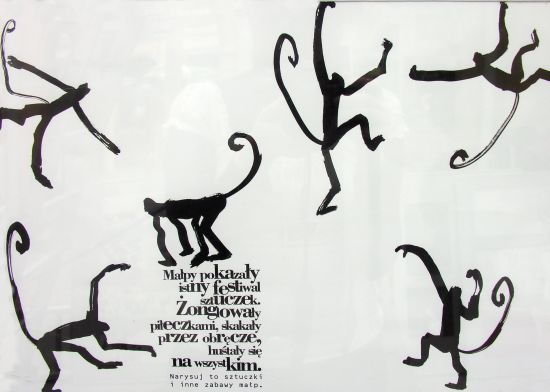 Małpy pokazały
istny festiwal
sztuczek.
Żonglowały
piłeczkami, skakały
przez obręcze,
huśtały się
na wszystkim.
Narysuj to sztuczki
i inne zabawy małp.